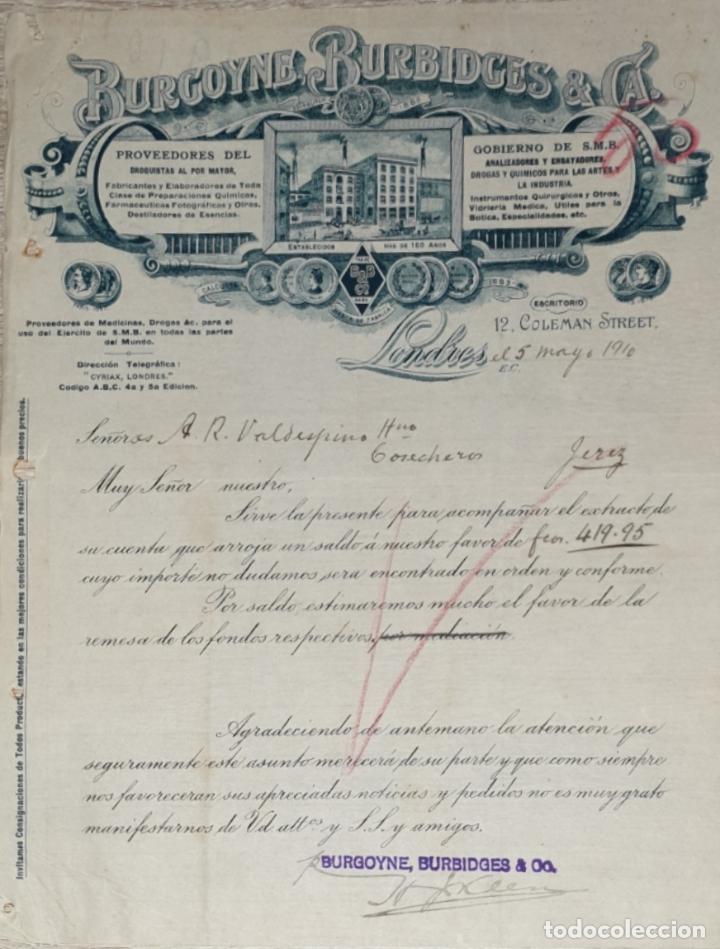 BURGOYNE, BURBIDGES & CA.
PROVEEDORES DEL
DROGUISTAS AL POR MAYOR,
Fabricantes y Elaboradores de Toda
Clase de Preparaciones Quimicas,
Farmaceuticas Fotográficas y Otras,
Destiladores de Esencias.
GOBIERNO DE S.M.B.
ANALIZADORES Y ENSAYADORES
DROGAS Y QUIMICOS PARA LAS ARTES Y
LA INDUSTRIA.
Instrumentos Quirurgicos y Otros,
Vidrieria Medica, Utiles para la
Botica, Especialidades, etc.
ESTABLECIDOS MAS DE 160 AÑOS
CALCUTTA
MARCA DE FABRICA
Proveedores de Medicinas, Drogas &c. para el
uso del Ejercito de S.M.B. en todas las partes
del Mundo.
Dirección Telegráfica:
"CYRIAX, LONDRES."
Codigo A.B.C. 4a y 5a Edicion.
ESCRITORIO
12, COLEMAN STREET,
Londres, el 5 mayo 1910
E.C.
Señores A. R. Valdespino Hno
Cosecheros Jerez
Muy Señor nuestro,
Sirve la presente para acompañar el extracto de
su cuenta que arroja un saldo á nuestro favor de fcos. 419.95
cuyo importé no dudamos sera encontrado en orden y conforme.
Por saldo, estimaremos mucho el favor de la
remesa de los fondos respectivos, por mediación.
Agradeciendo de antemano la atención que
seguramente este asunto merecerá de su parte y que como siempre
nos favoreceran sus apreciadas noticias y pedidos no es muy grato
manifestarnos de Vd attos y S.S. y amigos.
BURGOYNE, BURBIDGES & Co.
Invitamos Consignaciones de Todos Product, estando en las mejores condiciones para realizar buenos precios.
todocoleccion